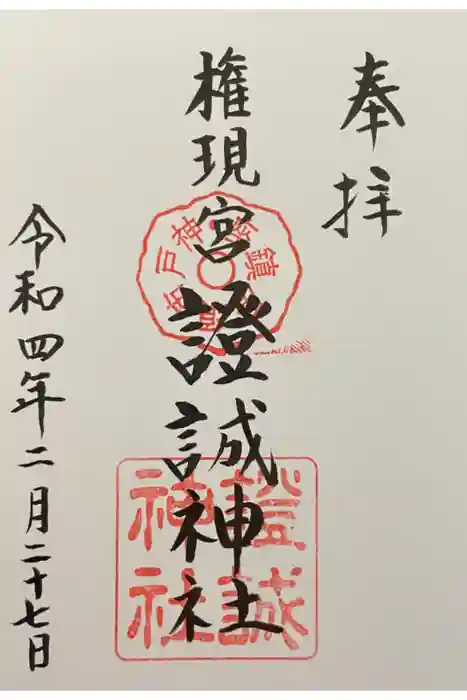 奉拝
権現宮證誠神社
令和四年二月二十七日
證誠
神社